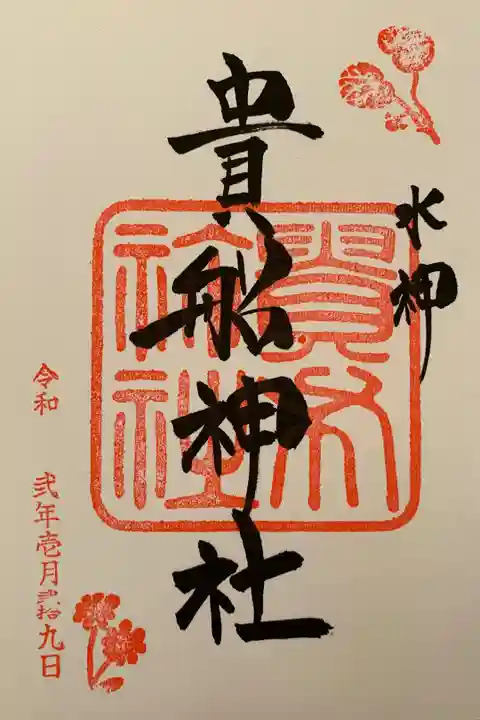 水神
貴船神社
令和 弐年壱月弐拾九日